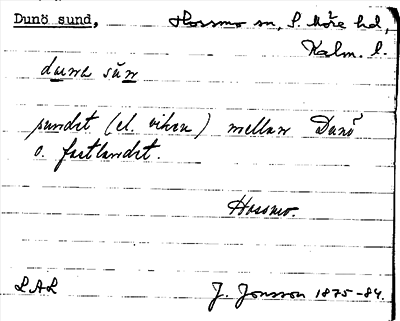 Dunö sund, Hossmo sn, S. Möre hd,
Kalm. l.
duna sün
sundet (el. viken) mellan Dunö
o. fastlandet.
Hossmo.
L.A.L J. Jonsson 1875-84.